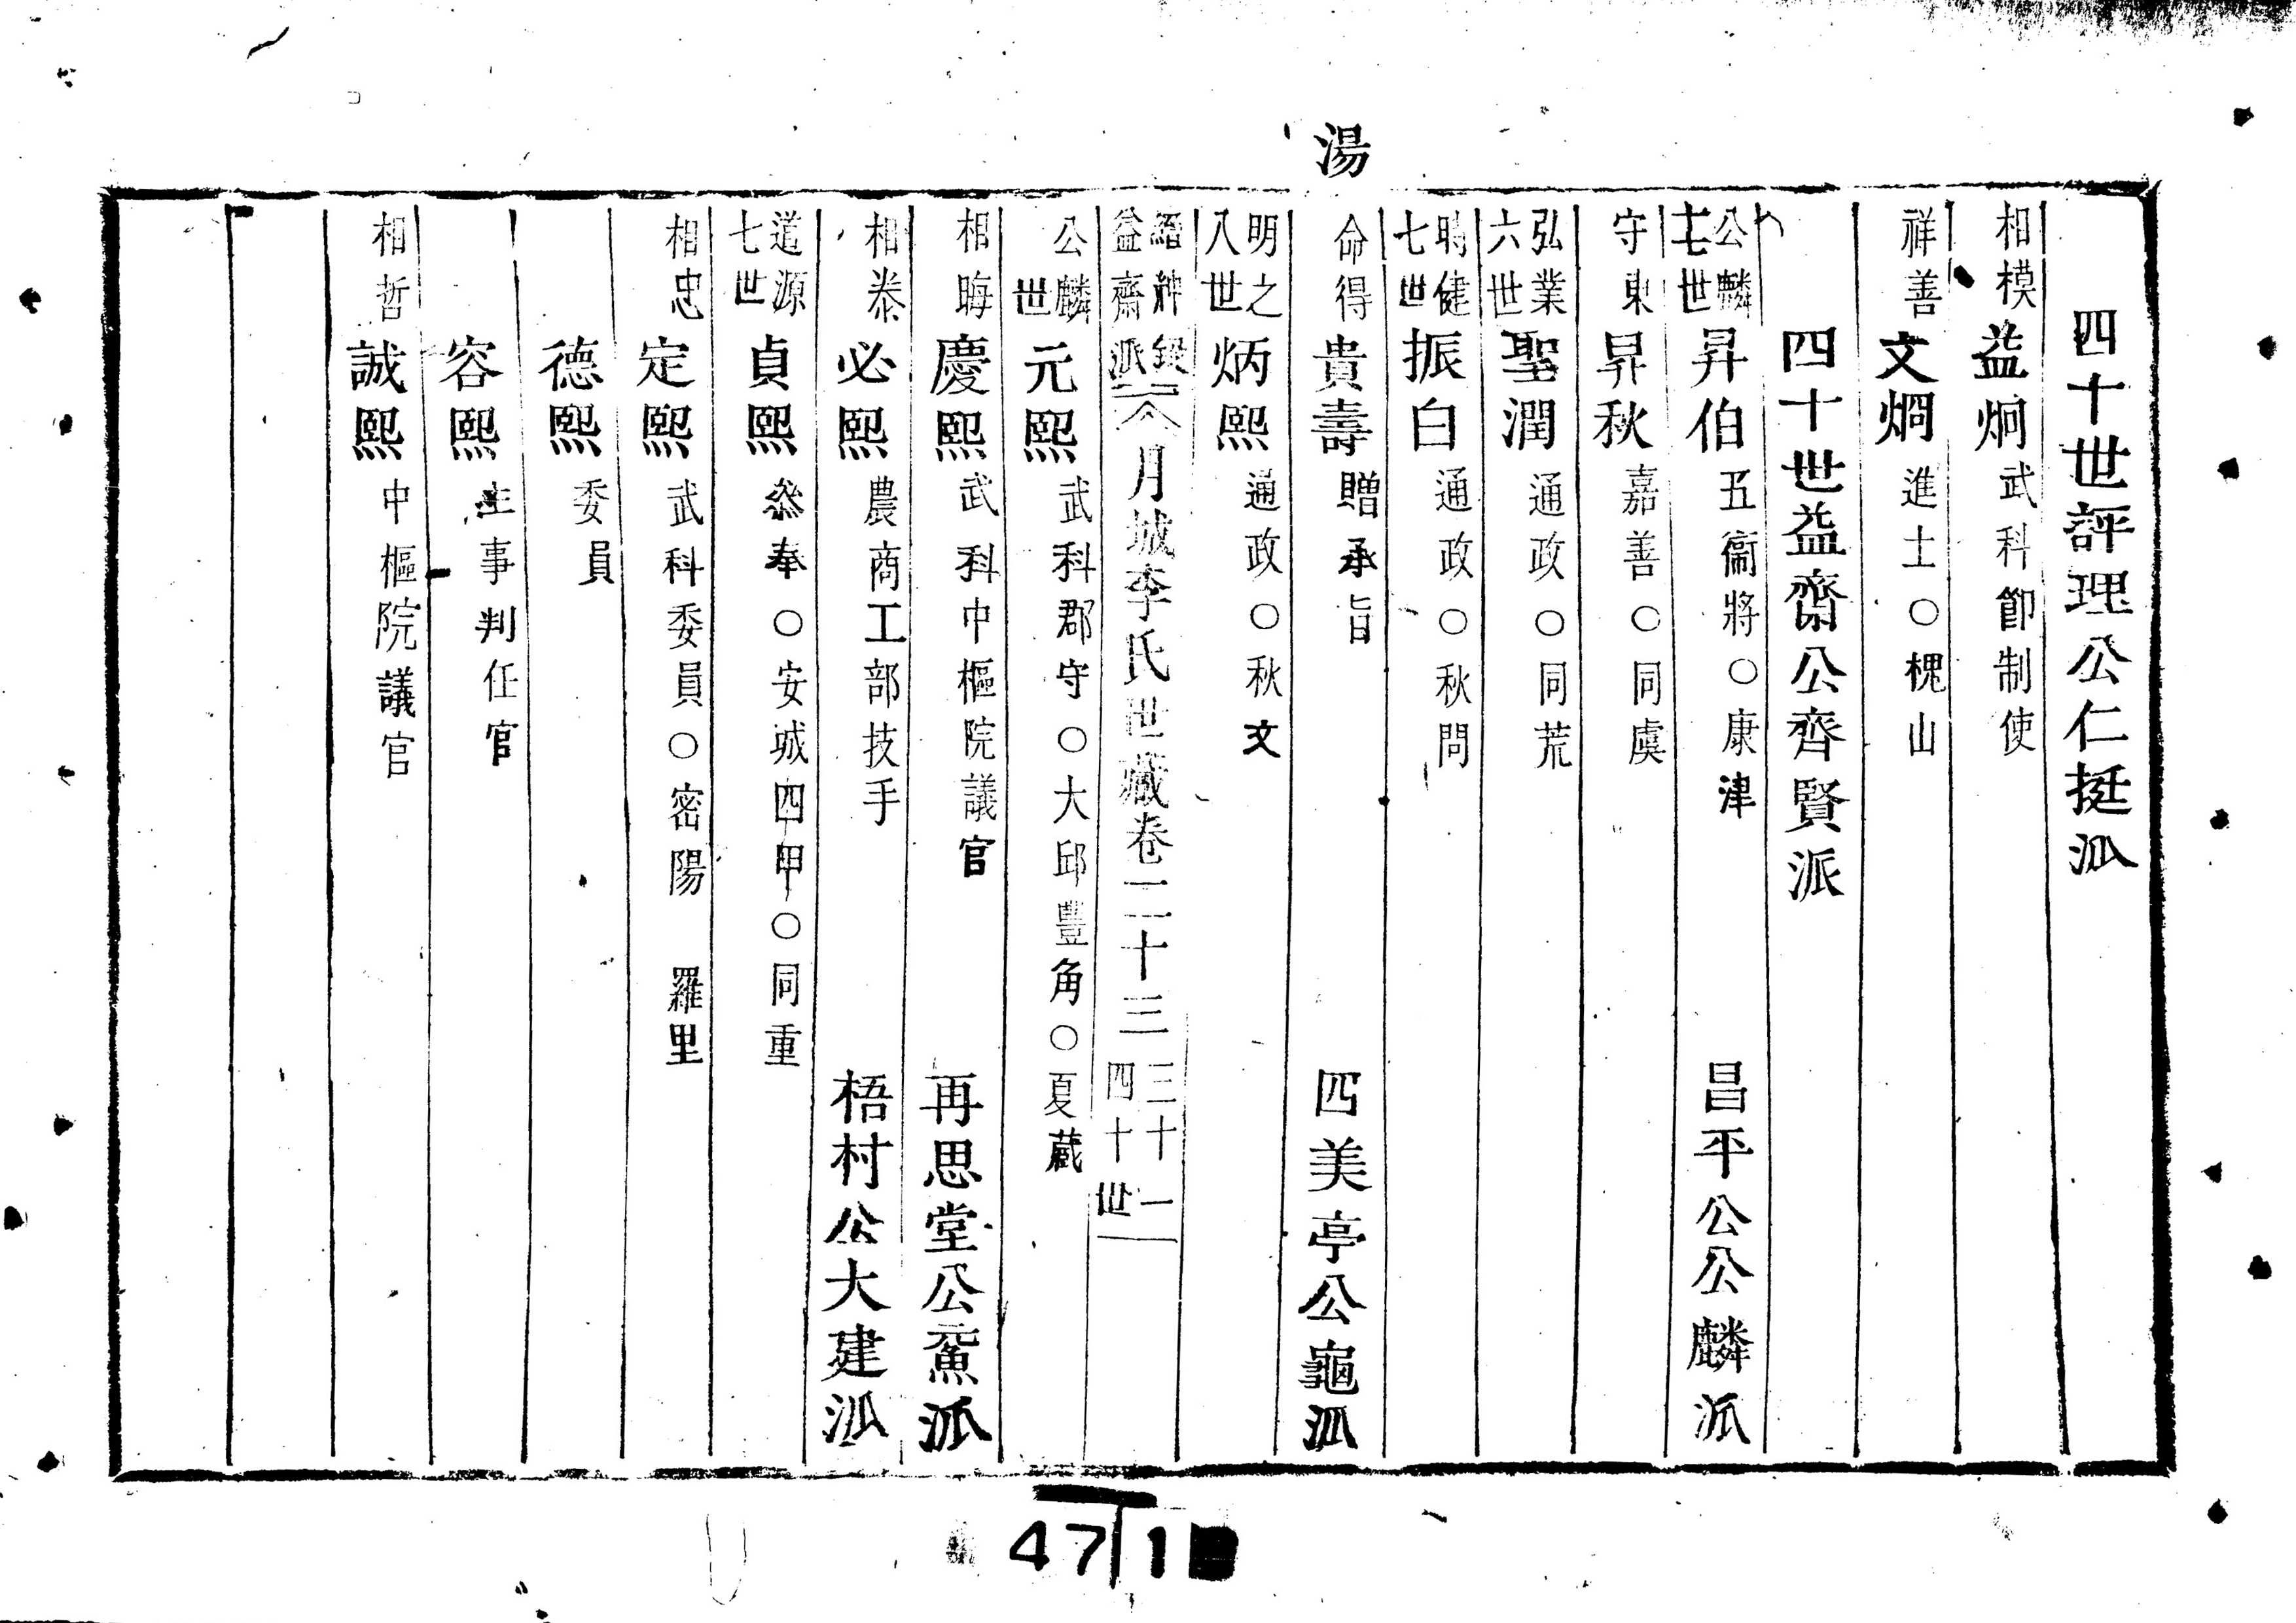 湯
四十世評理公仁挺派
相模益炯武科節制使
祥善文烱進士○槐山
四十世益齋公齊賢派
公麟七世昇伯五衞將○康津 昌平公公麟派
守東昇秋嘉善○同虞
弘業六世聖潤通政○同荒
聃健七世振白通政○秋問
命得貴壽贈承旨 四美亭公龜派
明之八世炳熙通政○秋文
縉紳錄益齋派二 月城李氏世藏卷二十三 三十一 四十世
公麟世元熙武科郡守○大邱豐角○夏藏
相晦慶熙武科中樞院議官 再思堂公黿派
相泰必熙農商工部技手 梧村公大建派
道源七世貞熙叅奉○安城四甲○同重
相忠定熙武科委員○密陽 羅里
德熙委員
容熙主事判任官
相哲誠熙中樞院議官
47 1